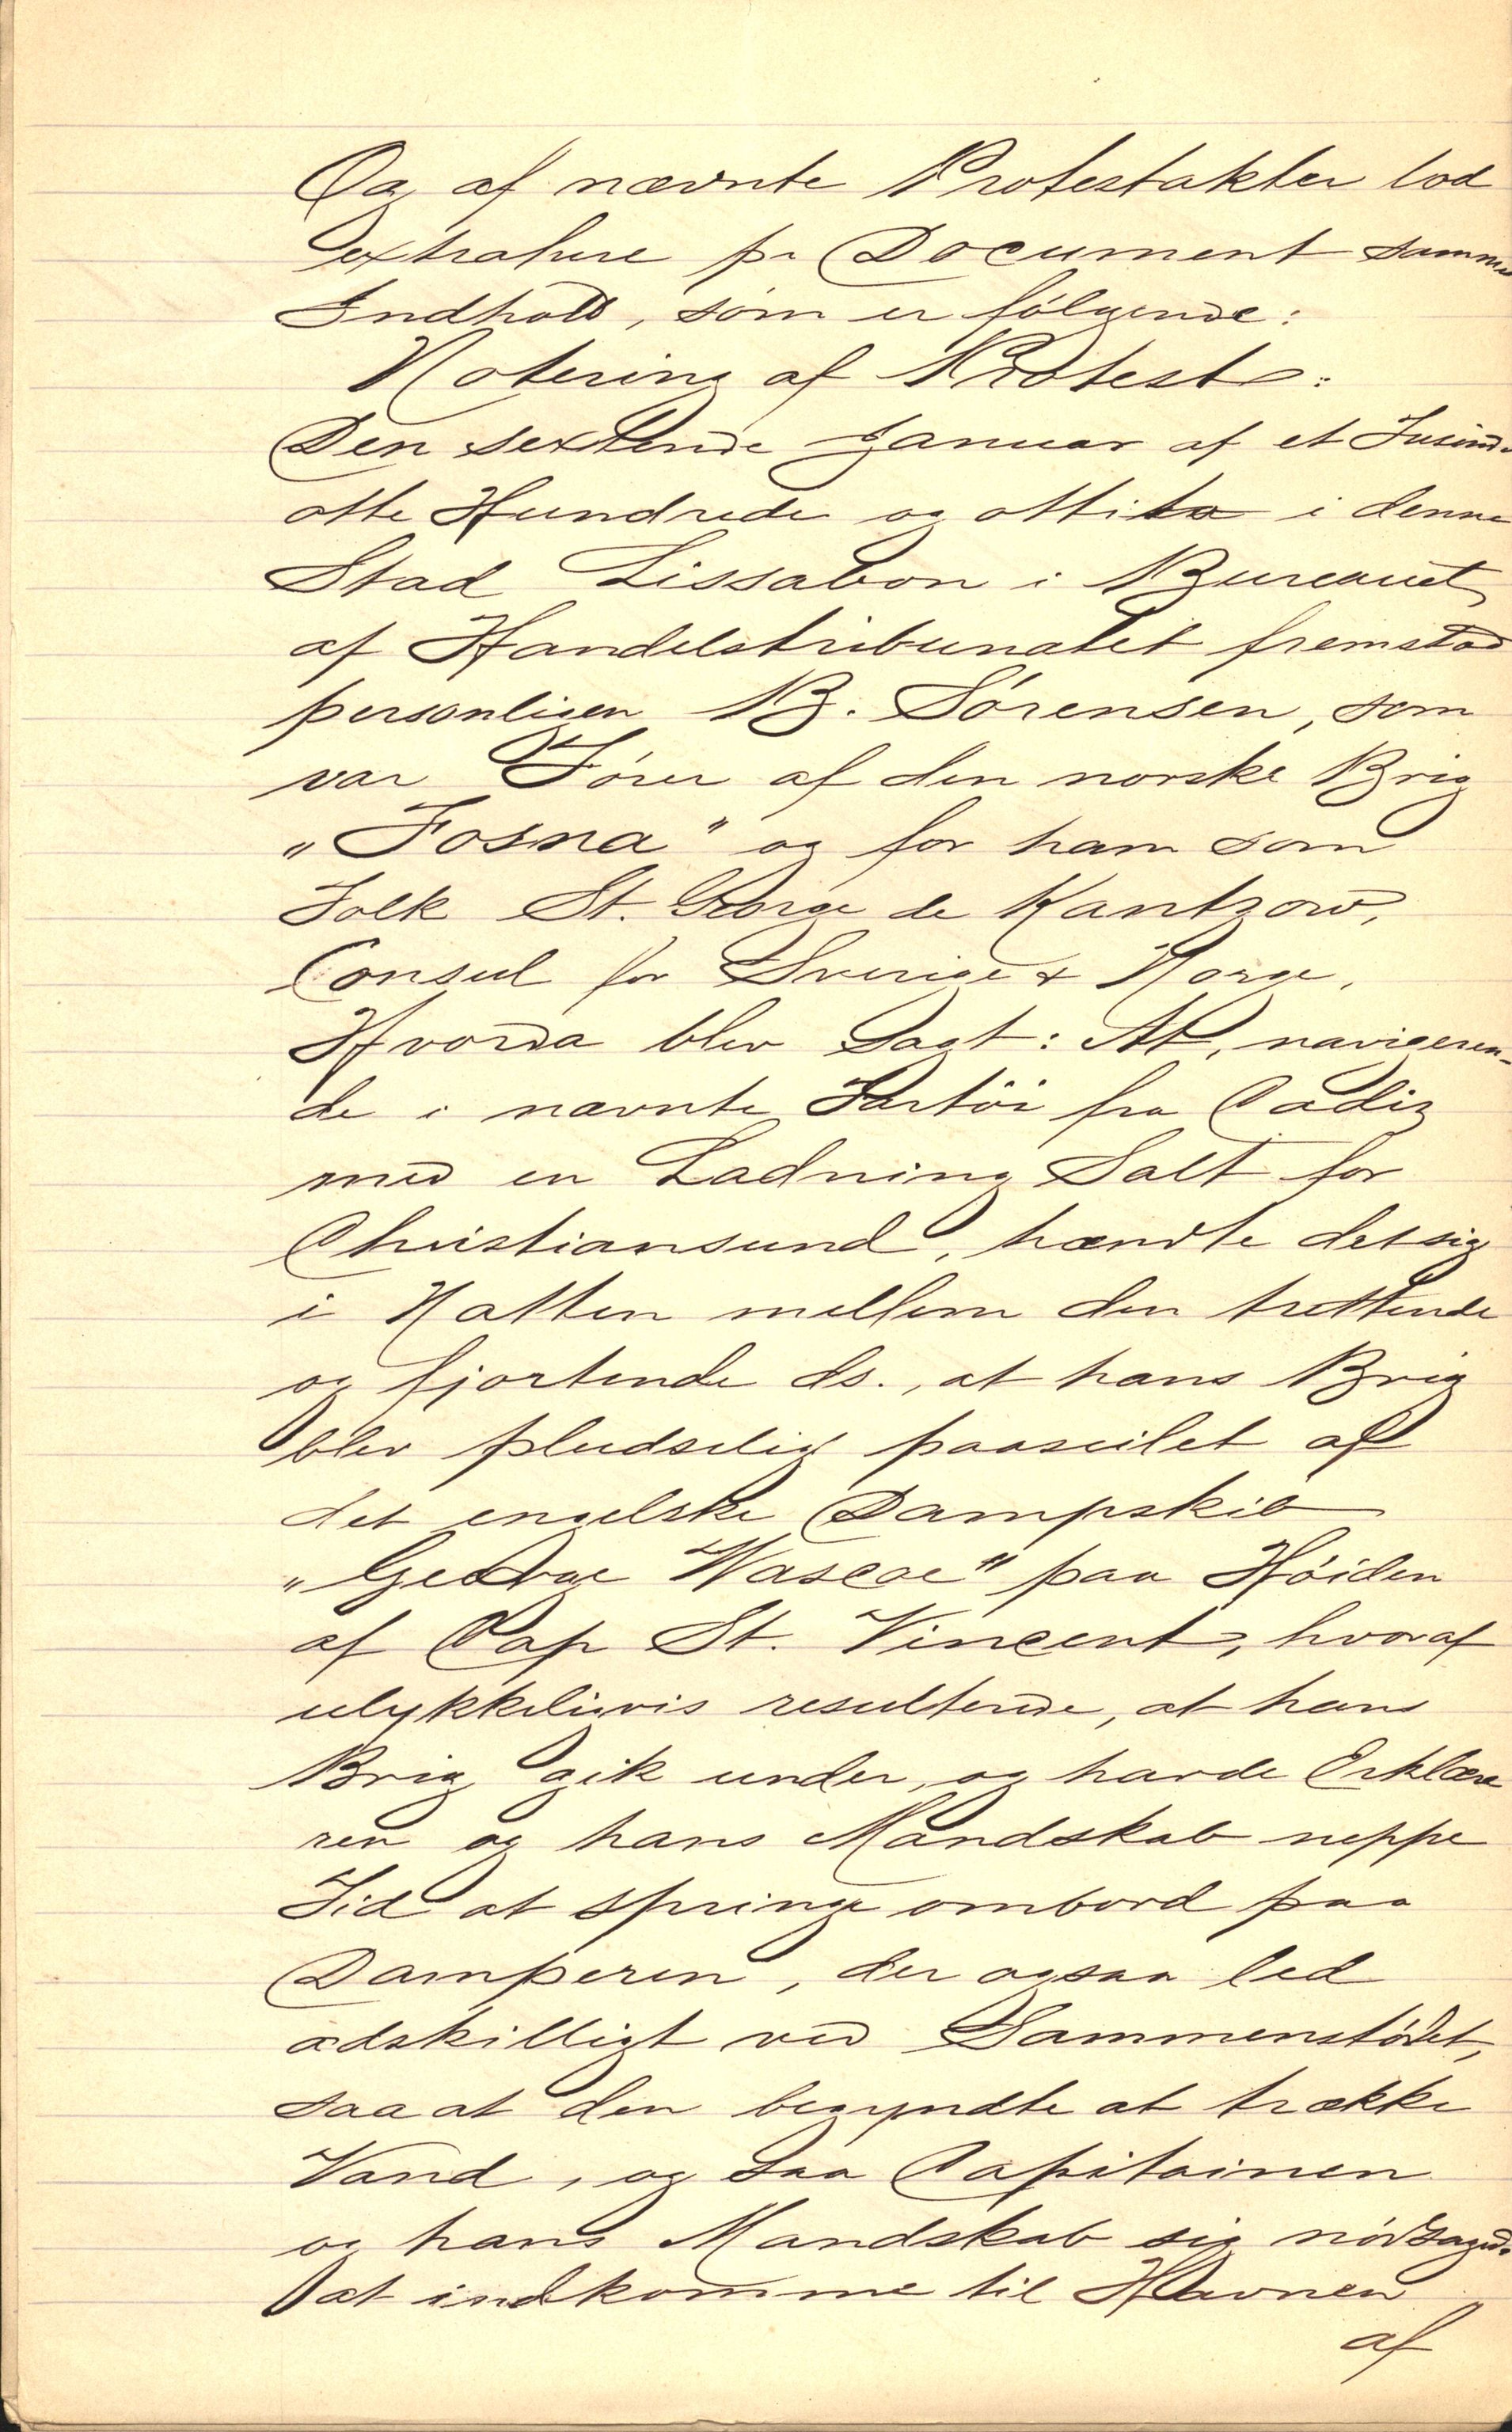 Og af nævnte Protestakter lod
extrahere pr Document samme
Indhold, som er følgende:
Notering af Protest:
Den sextende Januar af et Tusinde
otte Hundrede og ottito i denne
Stad Lissabon i Bureauet
af Handelstribunalet fremstod
personligen B. Sörensen, som
var Förer af den norske Brig
„Fosna" og for ham som
Tolk St. George de Kantzow,
Consul for Sverige & Norge.
Hvorda blev Sagt: At, navigeren-
de i nævnte Fartöi fra Cadiz
med en Ladning Salt for
Christiansund, hændte det sig
i Natten mellem den trettende
og fjortende ds., at hans Brig
blev pludselig paaseilet af
det engelske Dampskib
„George Wascoe" paa Höiden
af Cap St. Vincent, hvoraf
ulykkeligvis resulterede, at hans
Brig gik under, og havde Erklære
ren og hans Mandskab neppe
Tid at springe ombord paa
Damperen, der ogsaa led
adskilligt ved Sammenstödet,
saa at den begyndte at trække
Vand, og saa Capitainen
og hans Mandskab sig nödsaged.
at indkomme til Havnen
af